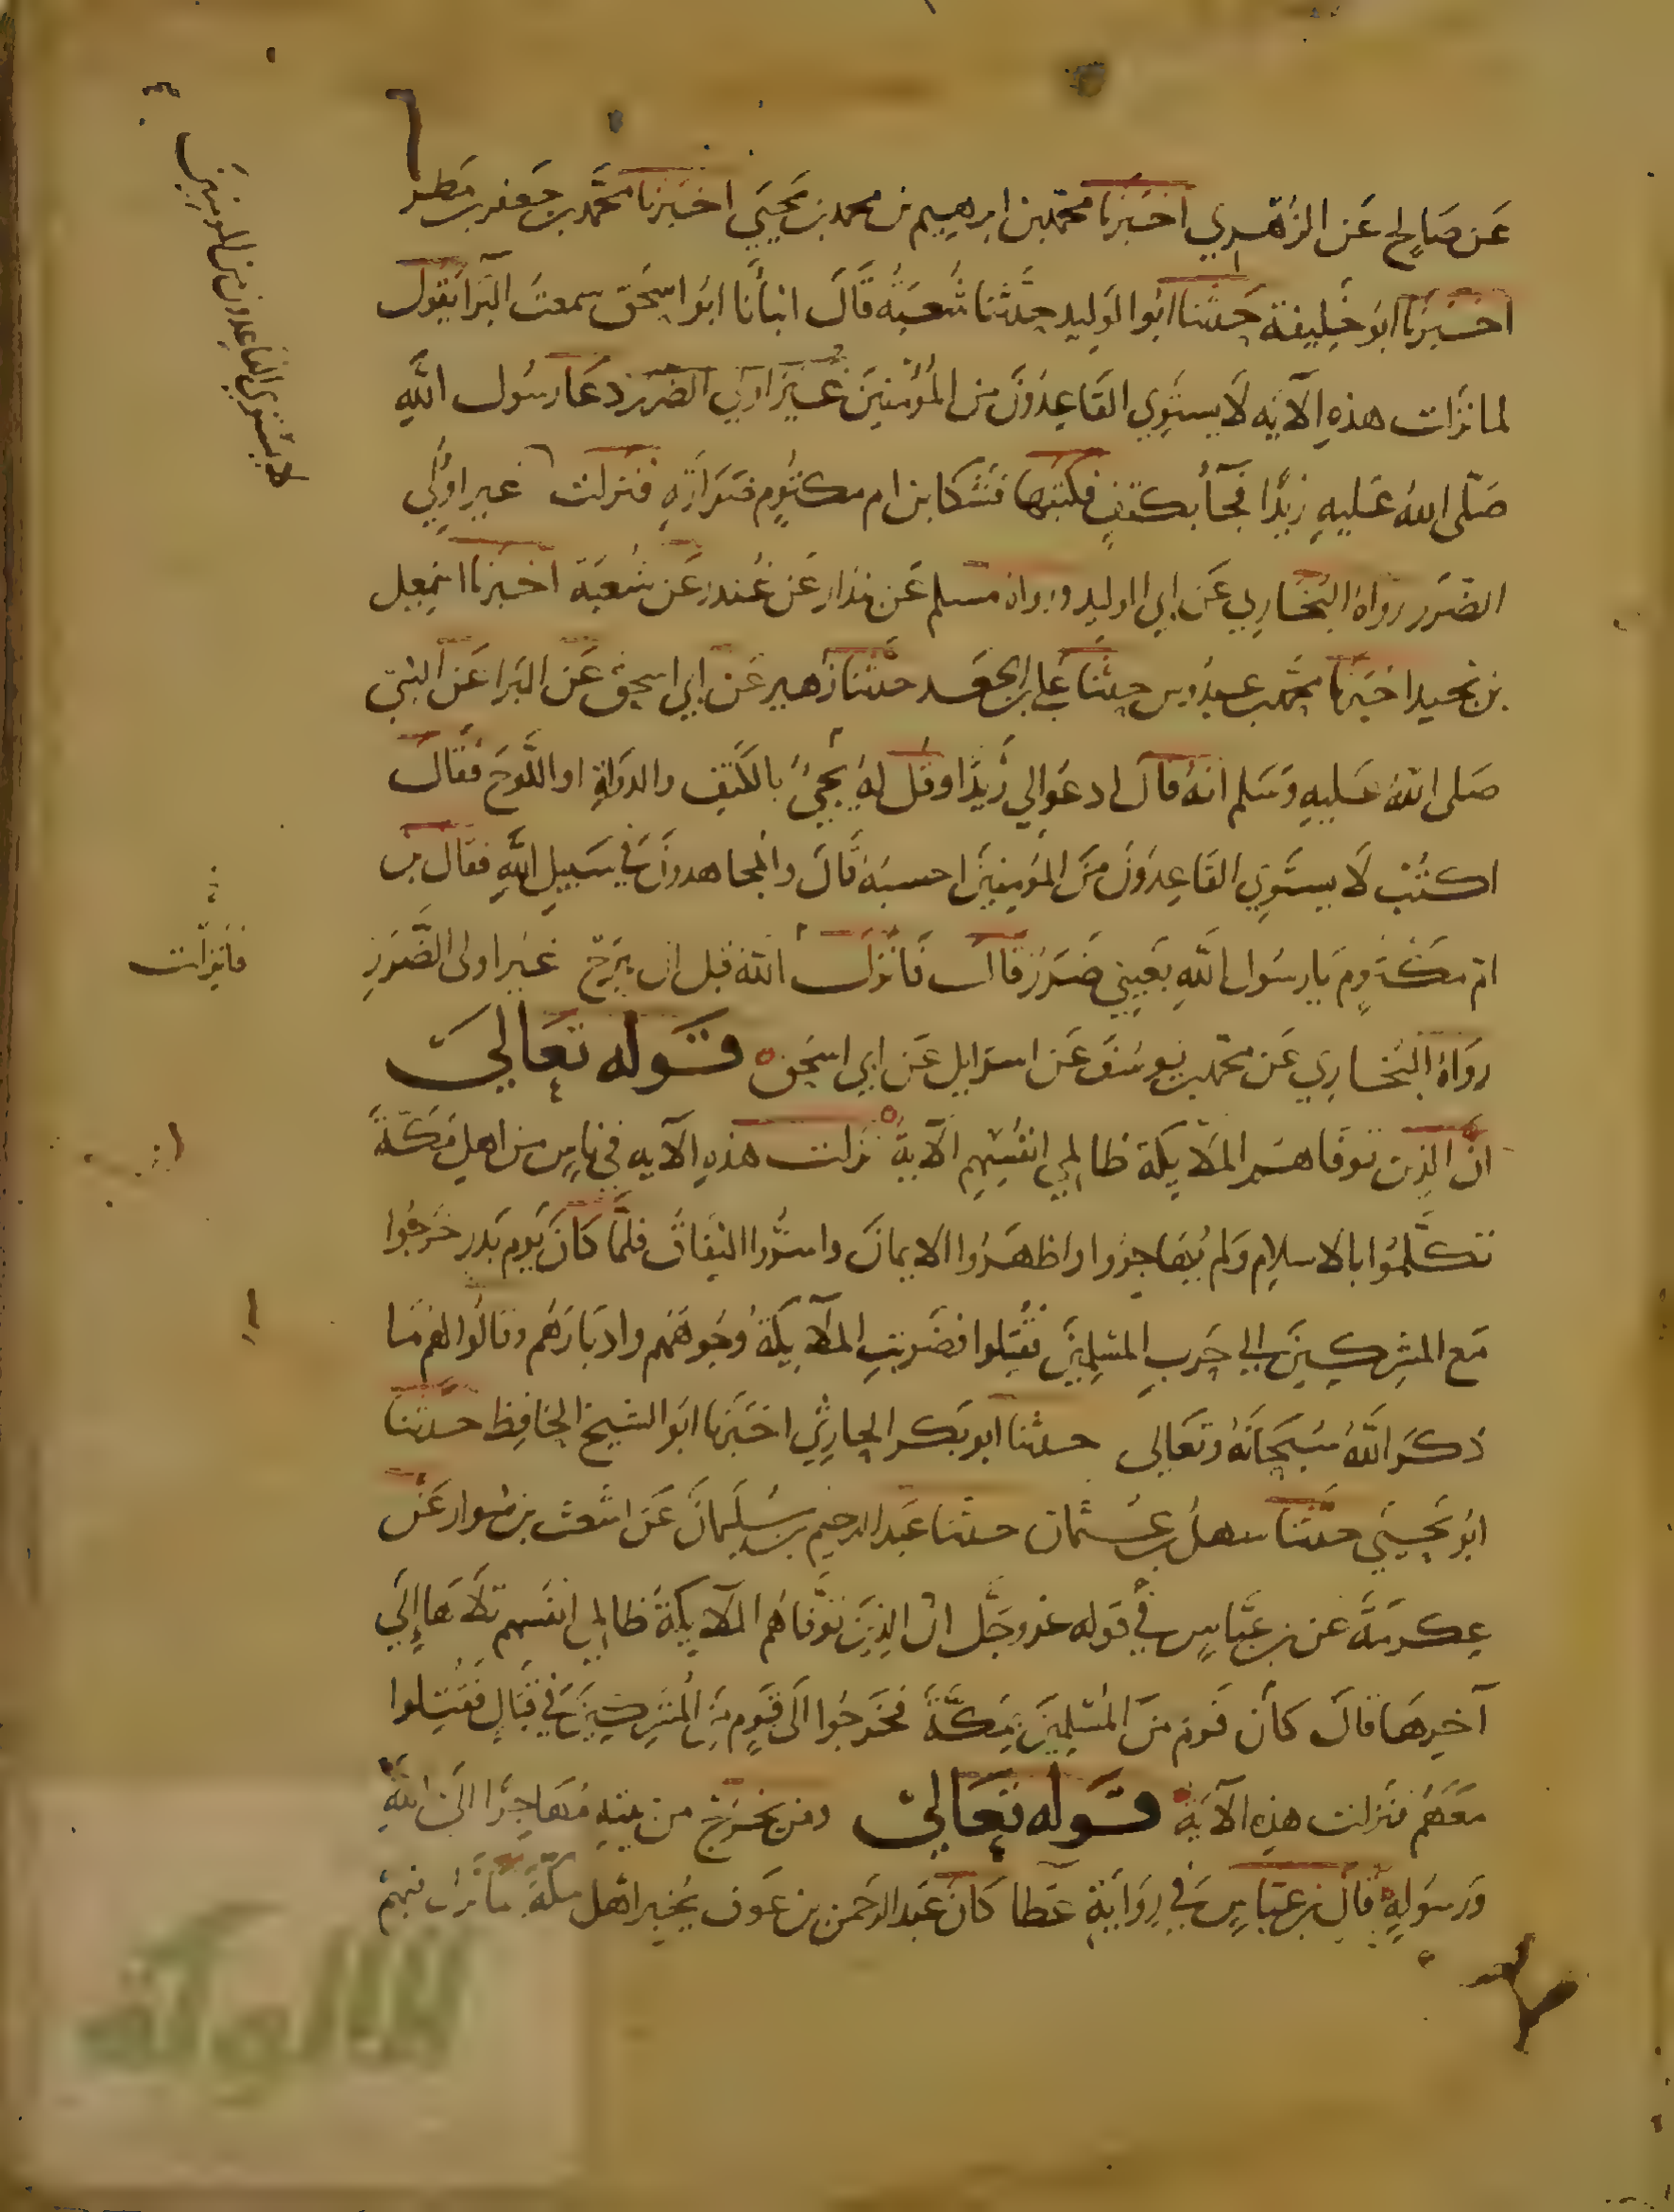 عَن صَالح عَن الزهري اخبرنا محمد بن ابرهيم بن محمد بن يحيى اخبرنا محمد بن جعفر بن مطر
اخبرنا ابو خليفة حدثنا ابو الوليد حدثنا شعبة قال انبأنا ابو اسحق سمعت البرا يقول
لما نزلت هذه الآيه لا يستوي القاعدون من المؤمنين غير اولي الضرر دعا رسول الله
صلى الله عليه زيدا فجآ بكتف فكتبها فشكا بن ام مكتوم ضرارته فنزلت غير اولي
الضرر رواه البخاري عن ابي الوليد ورواه مسلم عن بندار عن غندر عن شعبة اخبرنا اسمعيل
بن نجيد اخبرنا محمد بن عبدوس حدثنا علي بن الجعد حدثنا زهير عن ابي اسحق عن البرا عن النبي
صلى الله عليه وسلم انه قال ادعوا لي زيدا وقل له يجيئ بالكتف والدواة او اللوح فقال
اكتب لا يستوي القاعدون من المؤمنين احسبه قال والمجاهدون في سبيل الله فقال بن
ام مكتوم يا رسول الله بعيني ضرر قال فانزل الله قبل ان يبرح غير اولى الضرر
رواه البخاري عن محمد بن يوسف عن اسرايل عن ابي اسحق قوله تعالى
ان الذين توفاهم الملايكة ظالمي انفسهم الآية نزلت هذه الآيه في ناس من اهل مكة
تكلموا بالاسلام ولم يهاجروا واظهروا الايمان واسروا النفاق فلما كان يوم بدر خرجوا
مع المشركين الى حرب المسلمين فقتلوا فضربت الملايكة وجوههم وادبارهم وقالوا لهم ما
ذكر الله سبحانه وتعالى حدثنا ابو بكر الحارثي اخبرنا ابو الشيخ الحافظ حدثنا
ابو يحيى حدثنا سهل بن عثمان حدثنا عبد الرحيم بن سليمان عن اشعث بن سوار عن
عكرمة عن بن عباس في قوله عز وجل ان الذين توفاهم الملايكة ظالمي انفسهم تلاها إلى
آخرها قال كان قوم من المسلمين بمكة فخرجوا الى قوم من المشركين في قتال فقتلوا
معهم فنزلت هذه الآية قوله تعالى ومن يخرج من بيته مهاجرا الى الله
ورسوله قال بن عباس في رواية عطا كان عبد الرحمن بن عوف يخبر اهل مكة ما نزل فيهم
لا يستوي القاعدون من المومنين
فانزلت
الألوكة